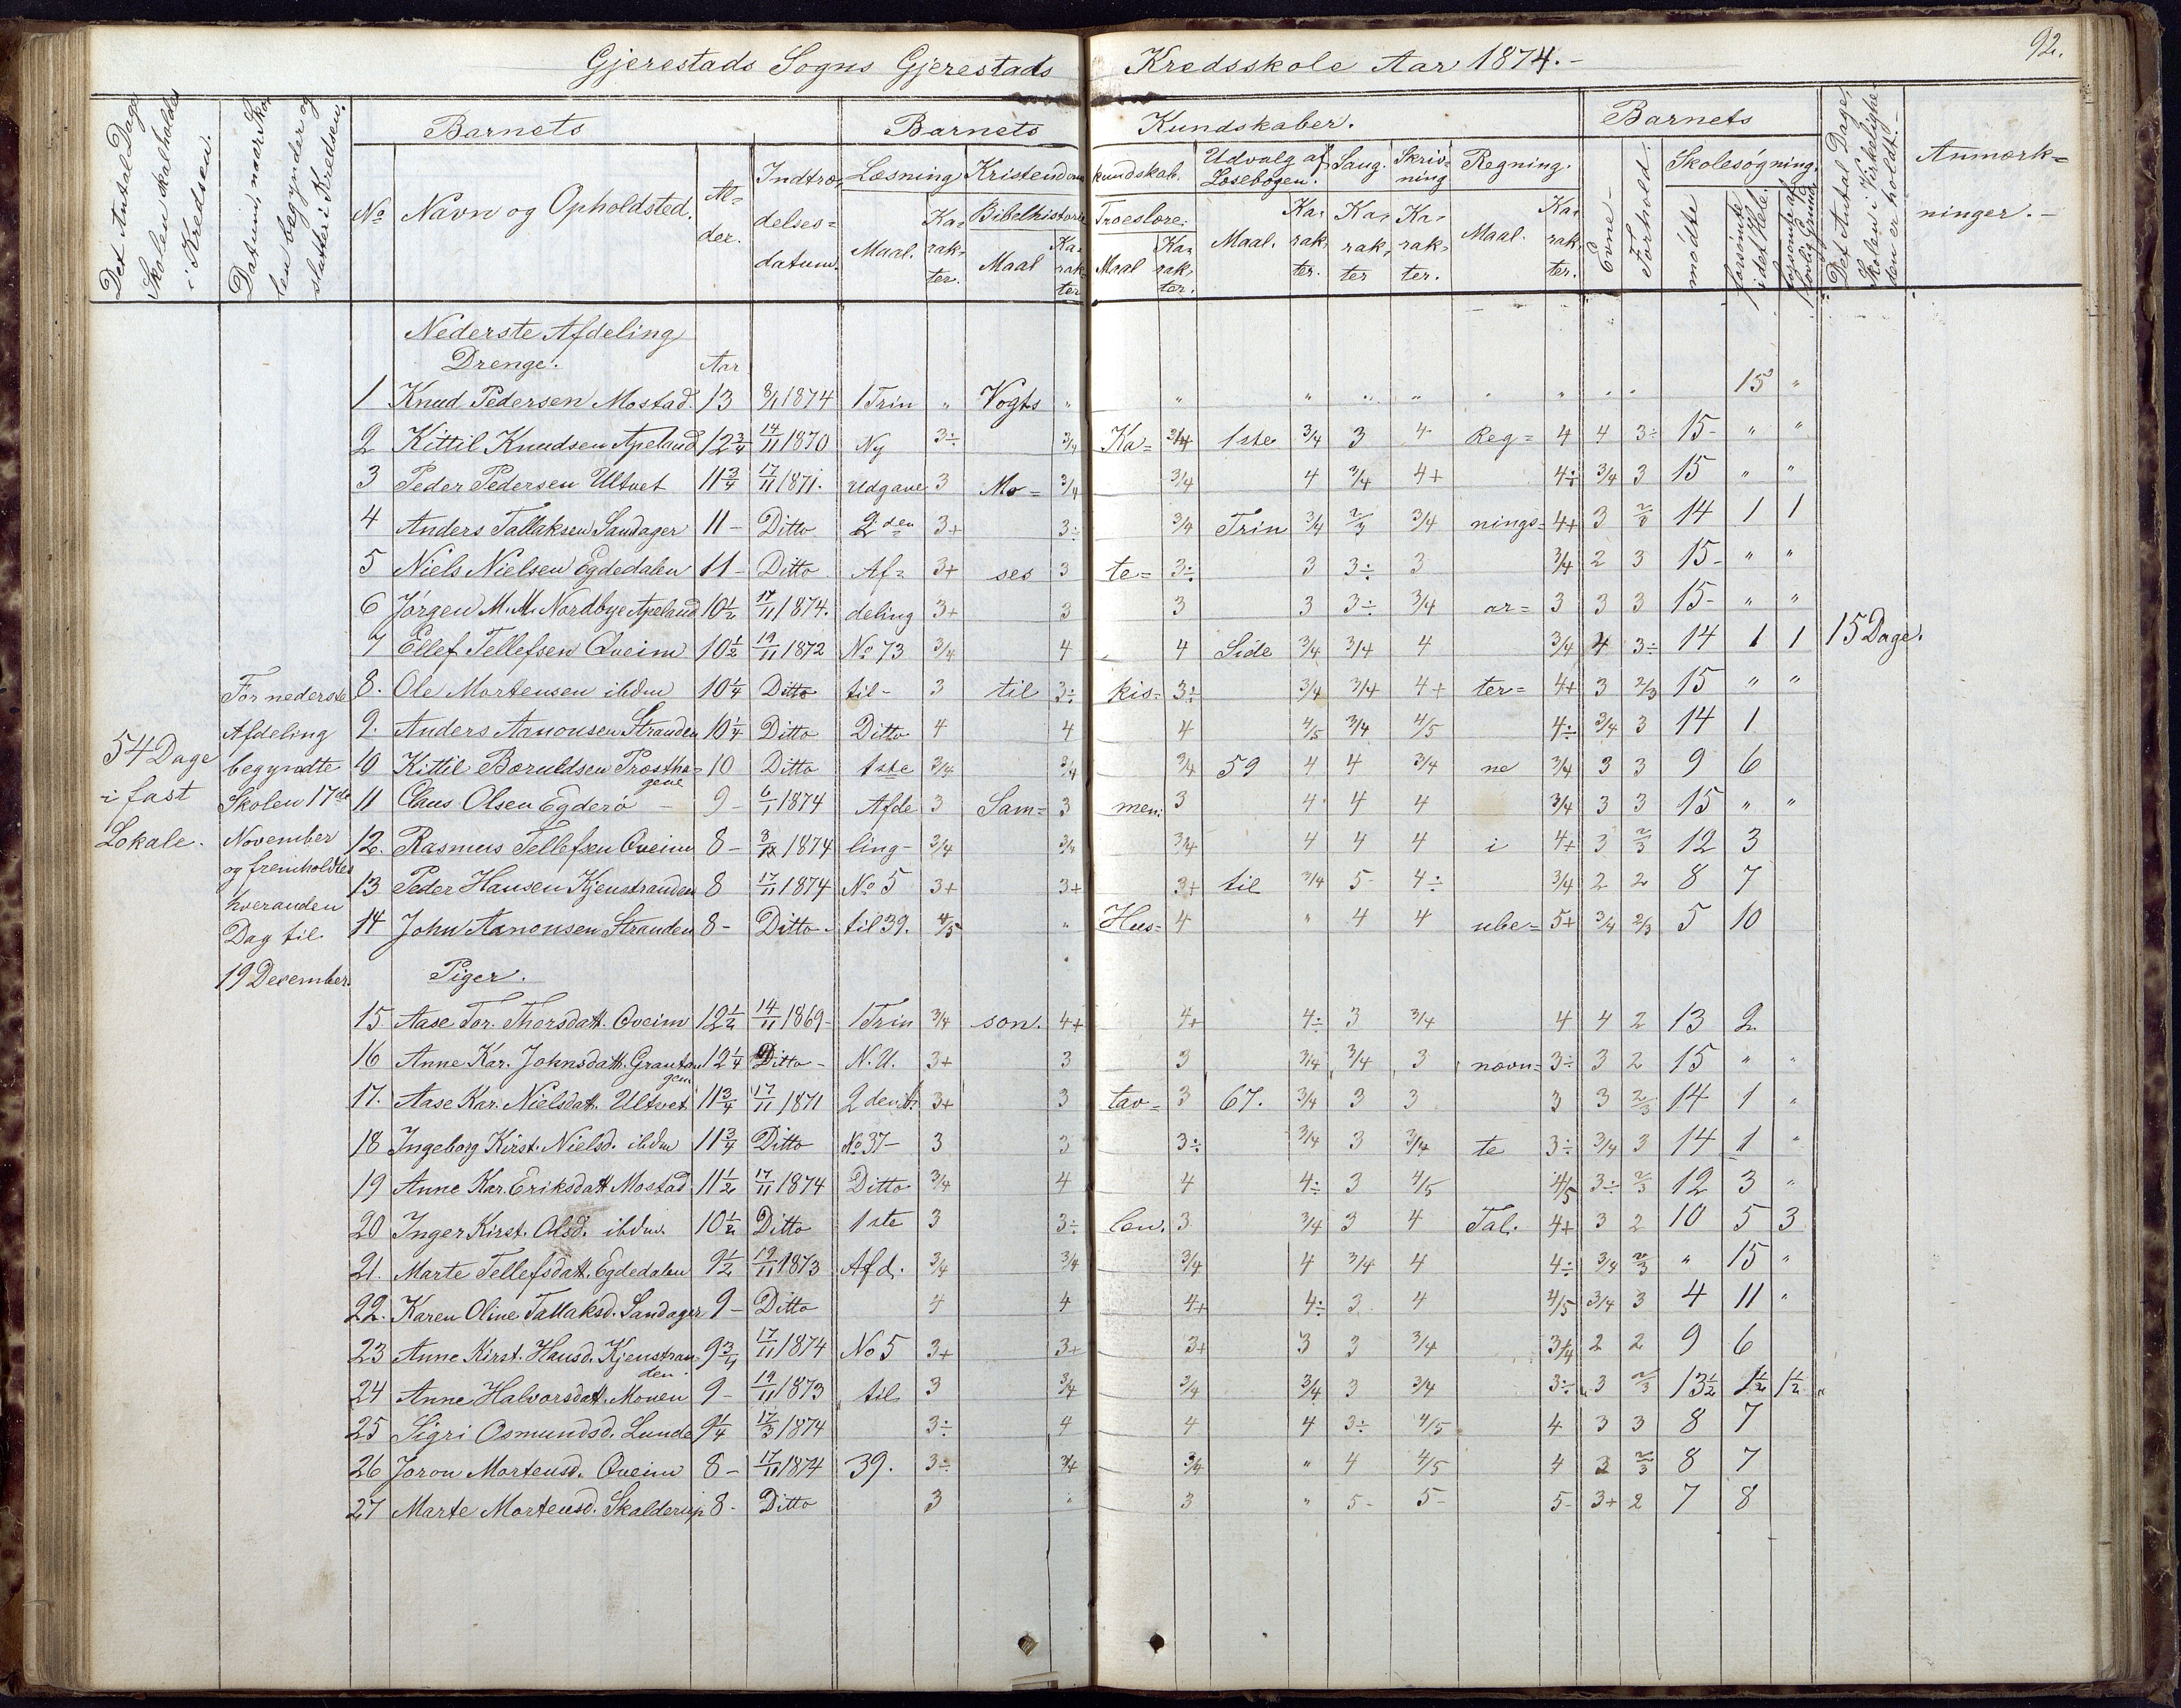 92.
Gjerestads Sogns Gjerestads Kredsskole Aar 1874.-
Det Antal Dage Skolen skal holdes i Kredsen.
Datum, naar Skolen begynder og slutter i Kredsen.
Barnets
Barnets Kundskaber.
Barnets
Det Antal Dage, Skolen i Virkeligheden er holdt.-
Anmærk=
ninger.-
No Navn og Opholdsted. Al=der. Indtræ=delses=datum.
Læsning Maal. Ka=rak=ter.
Kristendomskundskab. Bibelhistorie Maal Ka=rak=ter Troeslære. Maal Ka=rak=ter.
Udvalg af Læsebogen. Maal. Ka=rak=ter.
Sang. Ka=rak=ter
Skriv=ning Ka=rak=ter.
Regning. Maal. Ka=rak=ter.
Evne- Forhold. Skolesøgning. mødte forsømte i det Hele. forsømte af lovlig Grund
Nederste Afdeling
Drenge. Aar
1 Knud Pedersen Mostad. 13 8/1 1874 1 Trin " Vogts " " " " " " " " " 15 "
2 Kittil Knudsen Apeland 12 3/4 14/11 1870 Ny 3÷ 3/4 Ka= 3/4 1ste 3/4 3 4 Reg= 4 4 3÷ 15- " "
3 Peder Pedersen Ultvet 11 3/4 17/11 1871. Udgave 3 Mo= 3/4 3/4 4 3/4 4+ 4÷ 3/4 3 15 " "
4 Anders Tallaksen Sandager 11- Ditto 2den 3+ 3÷ 3/4 Trin 3/4 2/3 3/4 nings= 4+ 3 2/3 14 1 1
5 Niels Nielsen Egdedalen 11- Ditto Af= 3+ ses 3 te= 3÷ 3 3÷ 3 3/4 2 3 15- " "
6 Jørgen M. M. Nordbye Apeland 10 1/2 17/11 1874. deling 3+ 3 3 3 3÷ 3/4 ar= 3 3 3 15- " "
7 Ellef Tellefsen Qveim 10 1/2 19/11 1872 No 73 3/4 4 4 Side 3/4 3/4 4 3/4 4 3÷ 14 1 1 15 Dage.
8. Ole Mortensen ibdm 10 1/4 Ditto til- 3 til 3÷ kis= 3÷ 3/4 3/4 4+ ter= 4+ 3 2/3 15 " "
9. Anders Aanonsen Stranden 10 1/4 Ditto Ditto 4 4 4 4/5 3/4 4/5 4÷ 3/4 3 14 1
10 Kittil Børuldsen Prosthagene 10 Ditto 1ste 3/4 3/4 3/4 59 4 4 3/4 ne 3/4 3 3 9 6
11 Claus Olsen Egderø - 9- 6/1 1874 Afde 3 Sam= 3 men: 3 4 4 4 3/4 3 3 15 " "
12. Rasmus Tellefsen Qveim 8- 1874 ling- 3/4 3/4 3/4 4 4 4 i 4+ 3 2/3 12 3
13 Peder Hansen Kjenstranden 8 17/11 1874 No 5 3+ 3+ 3+ til 3/4 5- 4÷ 3/4 2 2 8 7
14 John Aanonsen Stranden 8- Ditto- til 39. 4/5 " Hus= 4 " 4 4 ube= 5+ 3/4 2/3 5 10
54 Dage
i fast
Lokale.
For nederste
Afdeling
begyndte
Skolen 17de
November
og fremholdtes
hveranden
Dag til
19 Desember.
Piger.
15 Aase Tor. Thorsdatt. Qveim 12 1/2 14/11 1869- 1 Trin 3/4 son. 4+ 4+ 4÷ 3 3/4 4 4 2 13 2
16 Anne Kar. Johnsdatt. Grautangen 12 1/4 Ditto- N. U. 3+ 3 3 3/4 3/4 3 navn= 3÷ 3 2 15 " "
17. Aase Kar. Nielsdatt. Ultvet 11 3/4 17/11 1871 3+ 3 tav= 3 67. 3/4 3 3 3 3 2/3 14 1 "
18 Ingeborg Kirst. Nielsd. ibdm 11 3/4 Ditto No 37- 3 3 3÷ 3/4 3 3/4 te 3÷ 3/4 3 14 1 "
19 Anne Kar. Eriksdatt Mostad 11 1/2 17/11 1874 Ditto 3/4 4 4 4÷ 3 4/5 4/5 3÷ 2/3 12 3 "
20 Inger Kirst. Olsd. ibdm. 10 1/2 Ditto 1ste 3 3÷ len. 3 3/4 3 4 Tal. 4+ 3 2 10 5 3
21. Marte Tellefsdatt. Egdedalen 9 1/2 19/11 1873 Afd. 3/4 3/4 3/4 4 3/4 4 4÷ 3/4 2/3 " 15 "
22. Karen Oline Tallaksd. Sandager 9- Ditto 4 4 4+ 4÷ 3 4 4/5 3/4 3 4 11 "
23 Anne Kirst. Hansd. Kjenstranden 9 3/4 17/11 1874 No 5 3+ 3+ 3+ 3 3 3/4 3/4 2 2 9 6
24 Anne Halvorsdatt. Mouen 9- 19/11 1873 til 3 3/4 3/4 3/4 3 3/4 3÷ 3 2/3 13 1/2 1 1/2 1 1/2
25 Sigri Osmundsd. Lunde 9 1/4 17/3 1874 3÷ 4 4 4 3÷ 4/5 4 3 3 8 7
26 Joron Mortensd. Qveim 8- 17/11 1874 39. 3÷ 3/4 3/4 " 4 4/5 4 3 2/3 8 7
27 Marte Mortensd. Skalderup 8- Ditto 3 " 3 " 5- 5- 5- 3+ 2 7 8